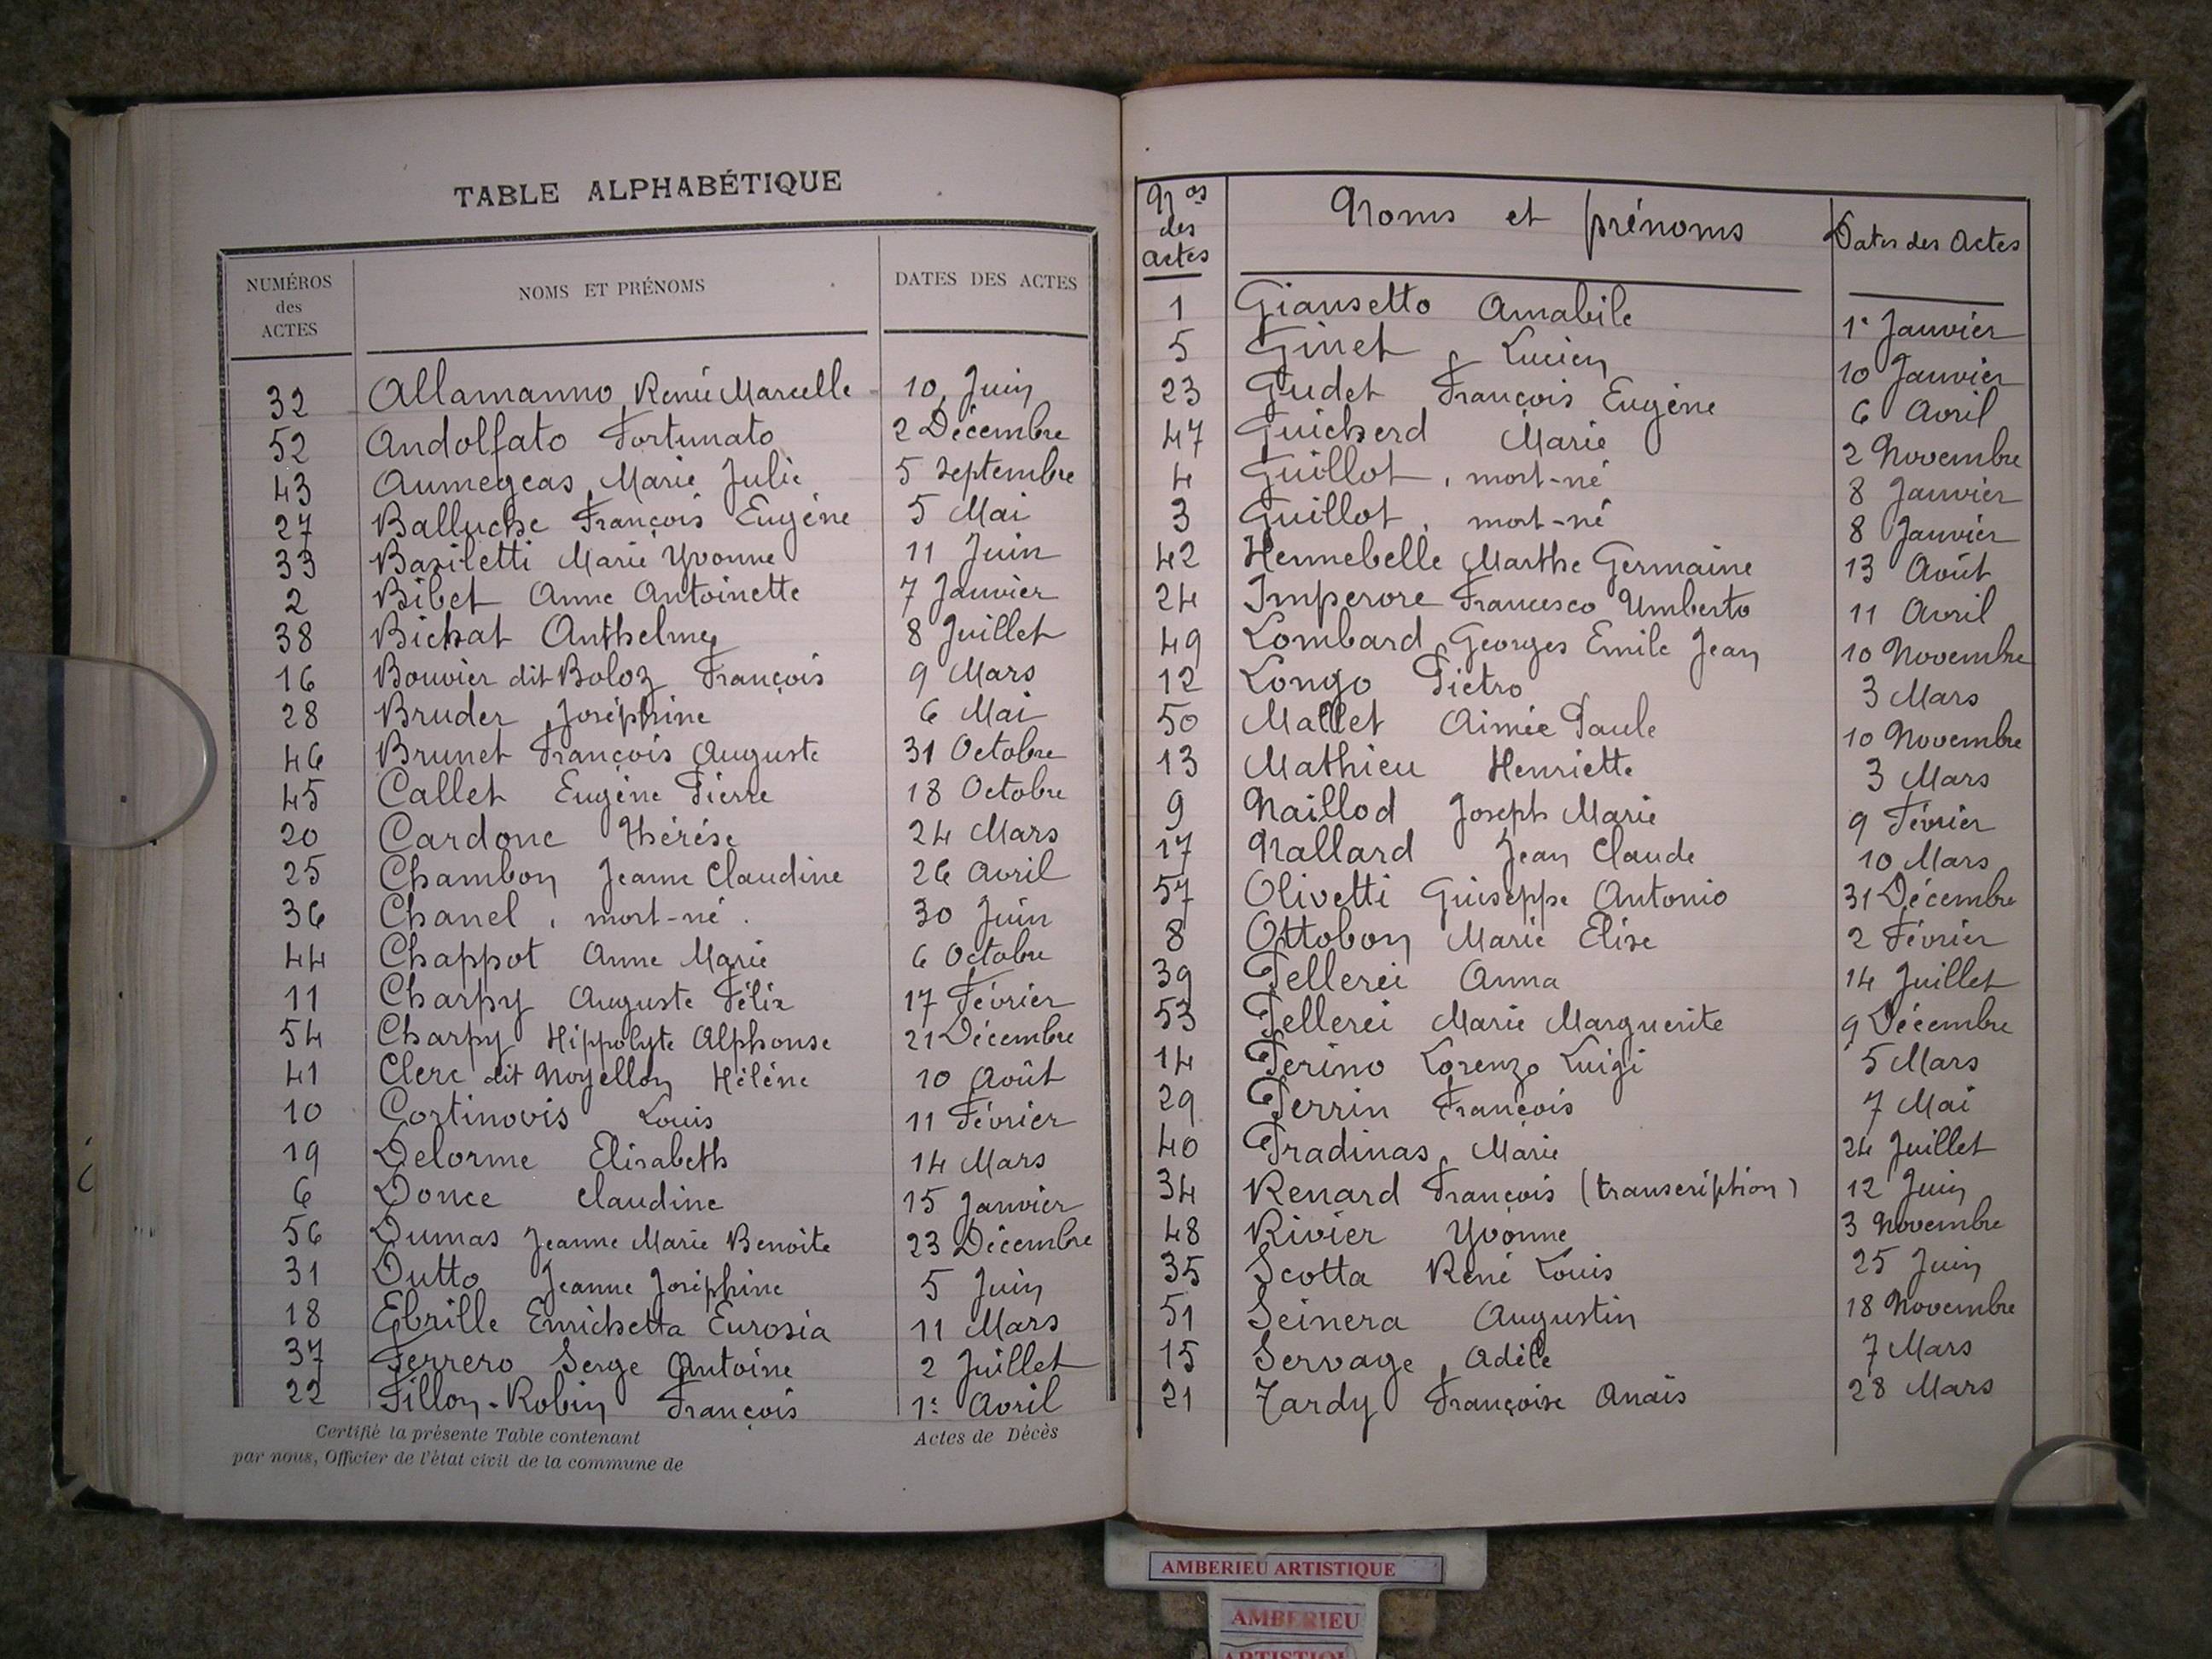 TABLE ALPHABÉTIQUE
NUMÉROS des ACTES NOMS ET PRÉNOMS DATES DES ACTES
32 Allamanno Renée Marcelle 10 Juin
52 Andolfato Fortunato 2 Décembre
43 Aumegeas Marie Julie 5 Septembre
27 Balluche François Eugène 5 Mai
33 Basiletti Marie Yvonne 11 Juin
2 Bibet Anne Antoinette 7 Janvier
38 Bichat Anthelme 8 Juillet
16 Bouvier dit Boloz François 9 Mars
28 Bruder Joséphine 6 Mai
46 Brunet François Auguste 31 Octobre
45 Callet Eugène Pierre 18 Octobre
20 Cardone Thérése 24 Mars
25 Chambon Jeanne Claudine 26 Avril
36 Chanel, mort-né. 30 Juin
44 Chappot Anne Marie 6 Octobre
11 Charpy Auguste Félix 17 Février
54 Charpy Hippolyte Alphonse 21 Décembre
41 Clerc dit Noyellon Hélène 10 Août
10 Cortinovis Louis 11 Février
19 Delorme Elisabeth 14 Mars
6 Donce Claudine 15 Janvier
56 Dumas Jeanne Marie Benoite 23 Décembre
31 Dutto Jeanne Joséphine 5 Juin
18 Ebrille Enrichetta Eurosia 11 Mars
37 Ferrero Serge Antoine 2 Juillet
22 Fillon-Robin François 1er Avril
Certifié la présente Table contenant Actes de Décès
par nous, Officier de l'état civil de la commune de
Nos des actes Noms et prénoms Dates des Actes
1 Giansetto Amabile 1er Janvier
5 Ginet Lucien 10 Janvier
23 Gudet François Eugène 6 Avril
47 Guicherd Marie 2 Novembre
4 Guillot, mort-né 8 Janvier
3 Guillot, mort-né 8 Janvier
42 Hennebelle Marthe Germaine 13 Août
24 Imperore Francesco Umberto 11 Avril
49 Lombard Georges Emile Jean 10 Novembre
12 Longo Pietro 3 Mars
50 Mallet Aimée Paule 10 Novembre
13 Mathieu Henriette 3 Mars
9 Naillod Joseph Marie 9 Février
17 Nallard Jean Claude 10 Mars
57 Olivetti Guiseppe Antonio 31 Décembre
8 Ottobon Marie Elise 2 Février
39 Pellerei Anna 14 Juillet
53 Pellerei Marie Marguerite 9 Décembre
14 Perino Lorenzo Luigi 5 Mars
29 Perrin François 7 Mai
40 Pradinas Marie 24 Juillet
34 Renard François (transcription) 12 Juin
48 Rivier Yvonne 3 Novembre
35 Scotta René Louis 25 Juin
51 Seinera Augustin 18 Novembre
15 Servage Adèle 7 Mars
21 Tardy Françoise Anaïs 28 Mars
AMBERIEU ARTISTIQUE
AMBERIEU
ARTISTIQUE